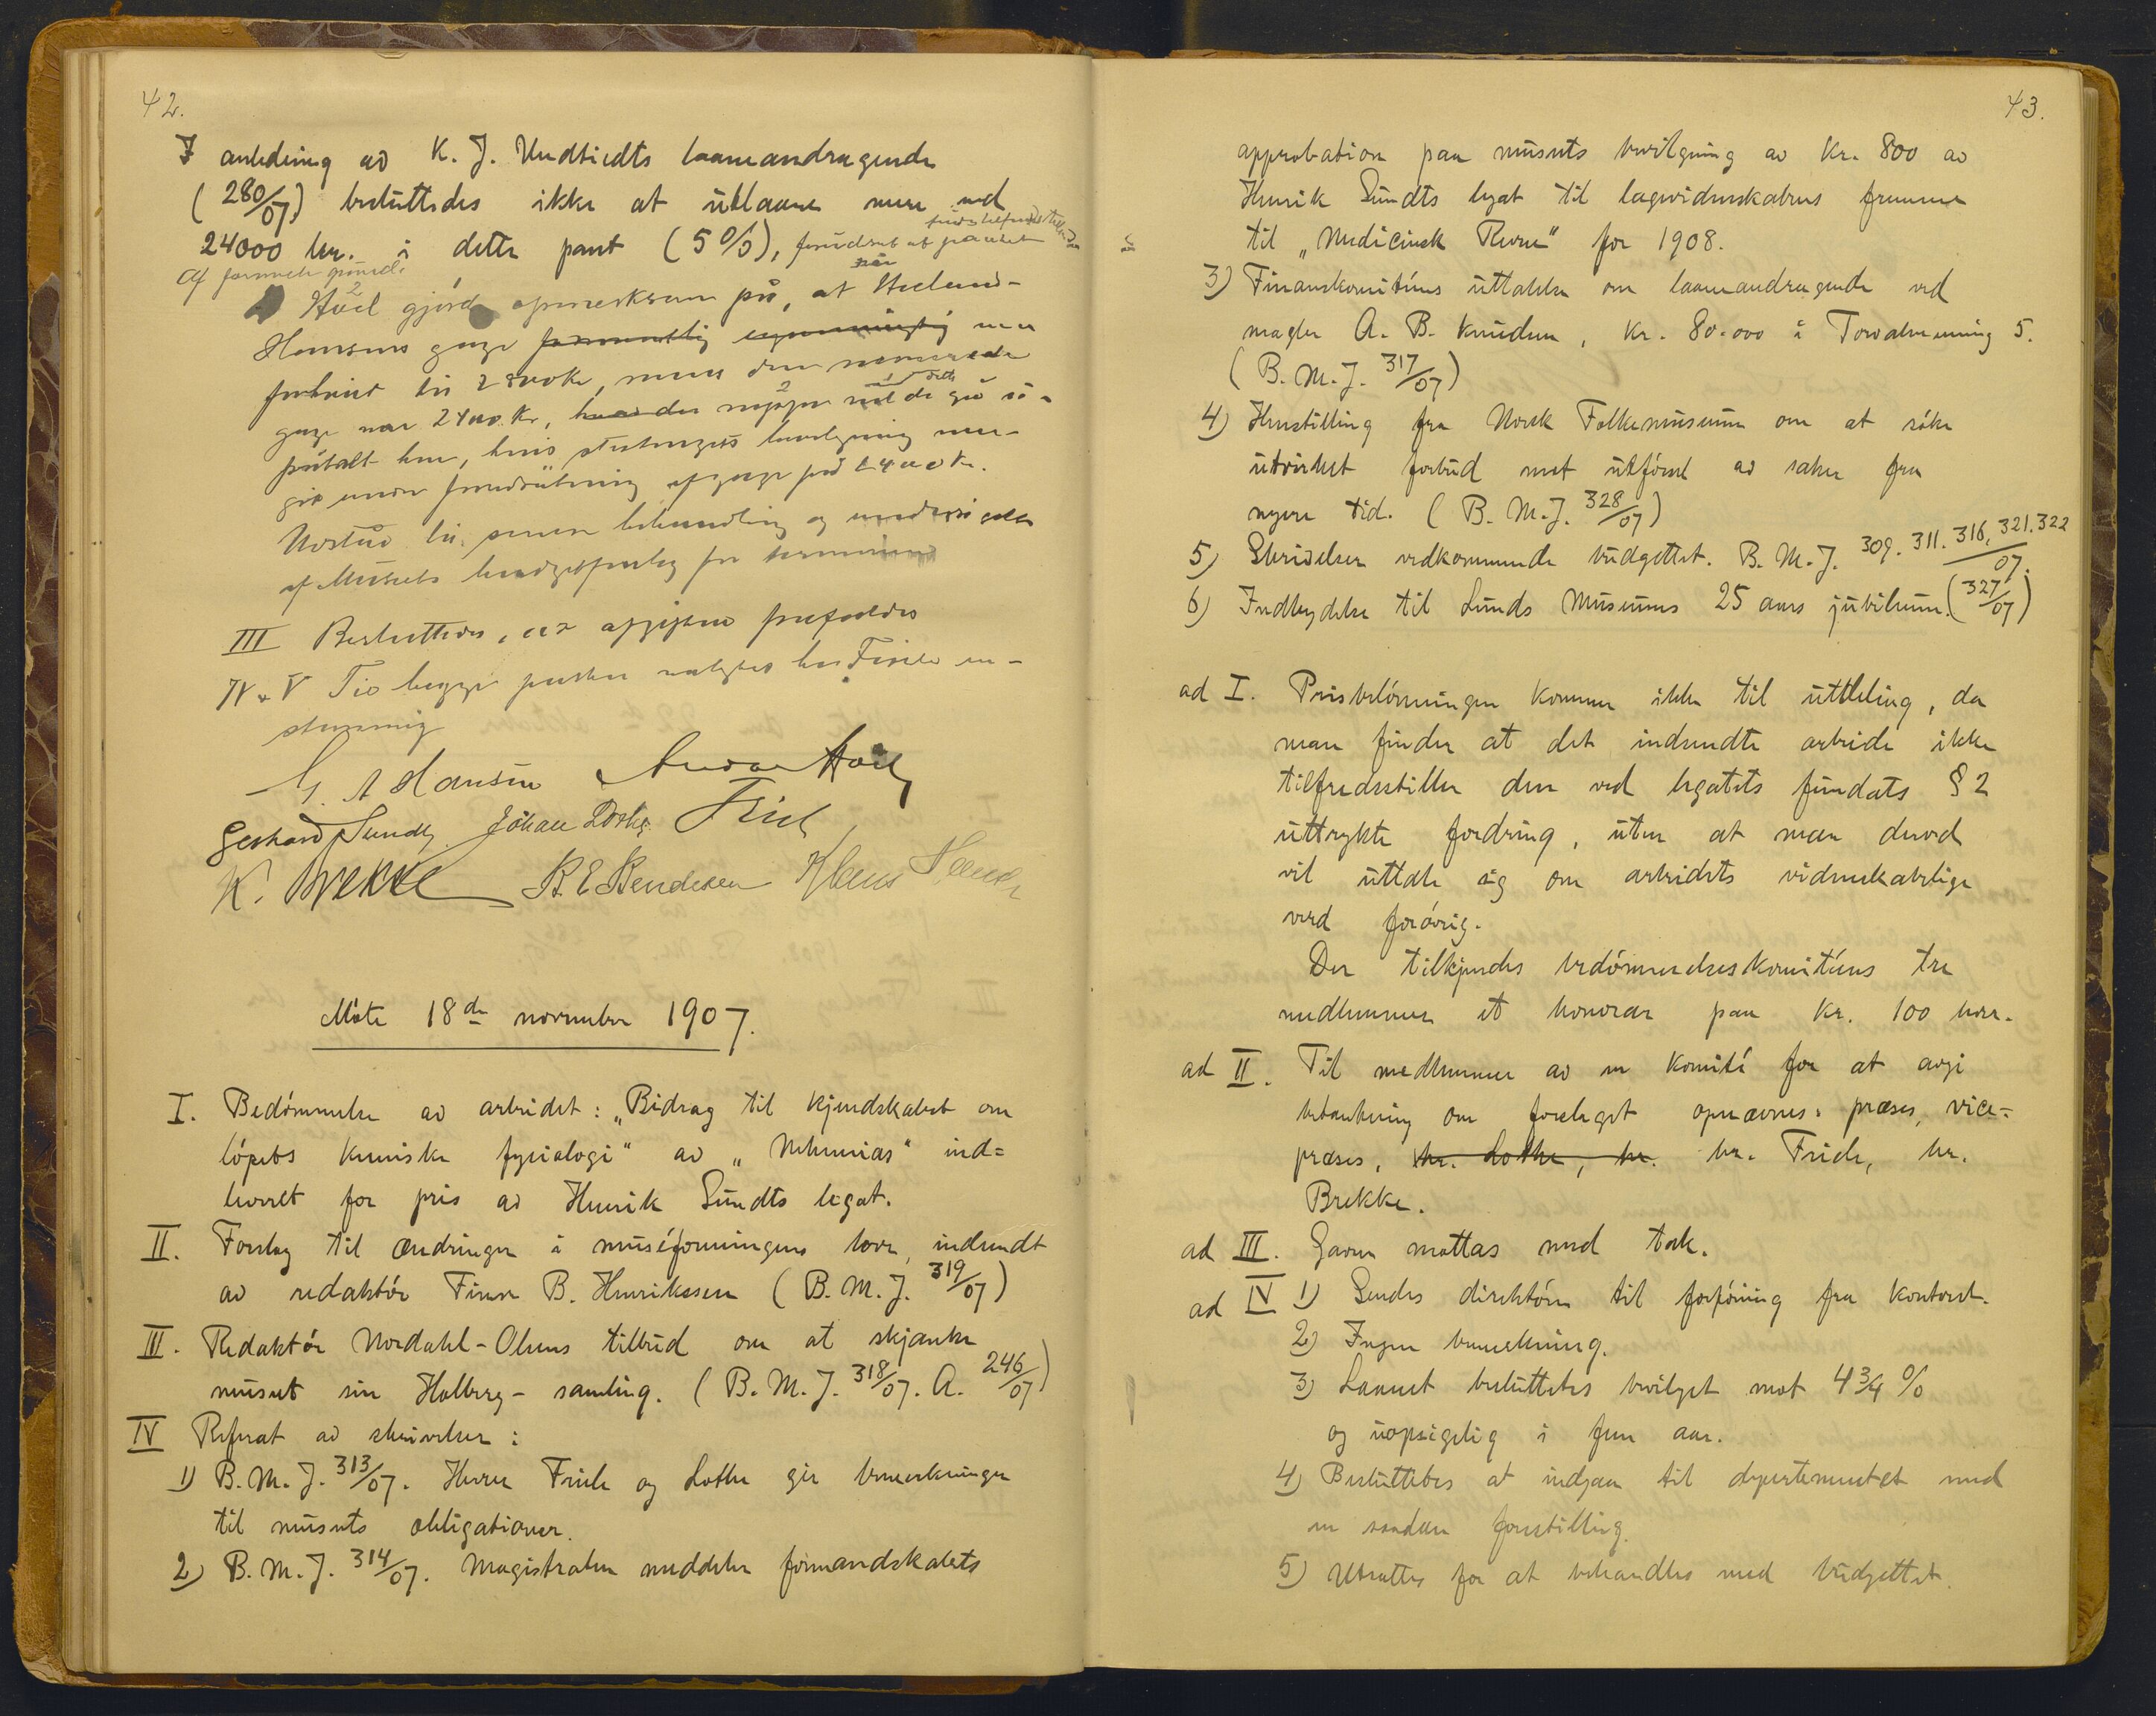 42.
I anledning av K. J. Vedtvedts laaneandragende
(280/07) besluttedes ikke at utlaane mere end
24000 kr. i dette pant (5%), forudsat at pantet
Hr. Höel gjorde opmerksom på, at Helland-
Hansens gage
forhøiet til 2800 kr, mens den nominerede
gage var 2400 kr,
påtalt här, hvis stortingets bevilgning
under forudsætning af gage på 2400 kr.
Utstod til senere behandling og
af Museets budgetforslag for terminen
III Besluttedes, at avgiften frafaldes
IV & V Til begge poster valgtes hr Friele en-
stemmig
G. A Hansen
Gerhard Sundt Johan Lothe Friele
K. Brekke B. E. Bendixen Klaus Hanssen
Møte 18de november 1907.
I. Bedømmelse av arbeidet: „Bidrag til kjendskabet om
løpets kemiske fysiologi“ av „Nehemias“ ind=
leveret for pris av Henrik Sundts legat.
II. Forslag til ændringer i muséforeningens love, indsendt
av redaktør Finn B. Henrikssen (B. M. J. 319/07)
III. Redaktør Nordahl-Olsens tilbud om at skjænke
museet sin Holberg-samling. (B. M. J. 318/07. A. 246/07)
IV Referat av skrivelser:
1) B. M. J. 313/07. Herrer Friele og Lothe gir bemerkninger
til museets obligationer.
2) B. M. J. 314/07. Magistraten meddeler formandskabets
43.
approbation paa museets bevilgning av kr. 800 av
Henrik Sundts legat til lægevidenskabens fremme
til „Medicinsk Revue“ for 1908.
3) Finanskomitéens uttalelse om laaneandragende ved
megler A. B. Knudsen, kr. 80.000 i Torvalmenning 5.
(B. M. J. 317/07)
4) Henstilling fra Norsk Folkemuseum om at søke
utvirket forbud mot utførsel av saker fra
nyere tid. (B. M. J. 328/07)
5) Skrivelser vedkommende budgettet. B. M. J. 309. 311. 316, 321. 322/07.
6) Indbydelse til Lunds Museums 25 aars jubilæum. (327/07)
ad I. Prisbelønningen kommer ikke til uttdeling, da
man finder at det indsendte arbeide ikke
tilfredsstiller den ved legatets fundats § 2
uttrykte fordring, uten at man derved
vil uttale sig om arbeidets videnskabelige
verd forøvrig.
Der tilkjendes bedømmelseskomitéens tre
medlemmer et honorar paa kr. 100 hver.
ad II. Til medlemmer av en komité for at avgi
betænkning om forslaget opnævnes: præses, vice-
præses, hr. Lothe, hr. hr. Friele, hr.
Brekke.
ad III. Gaven mottas med tak.
ad IV 1) Sendes direktøren til forføining fra kontoret.
2) Ingen bemerkning.
3) Laanet besluttedes bevilget mot 4 3/4 %
og uopsigelig i fem aar.
4) Besluttedes at indgaa til departementet med
en saadan forestilling.
5) Utsattes for at behandles med budgettet.